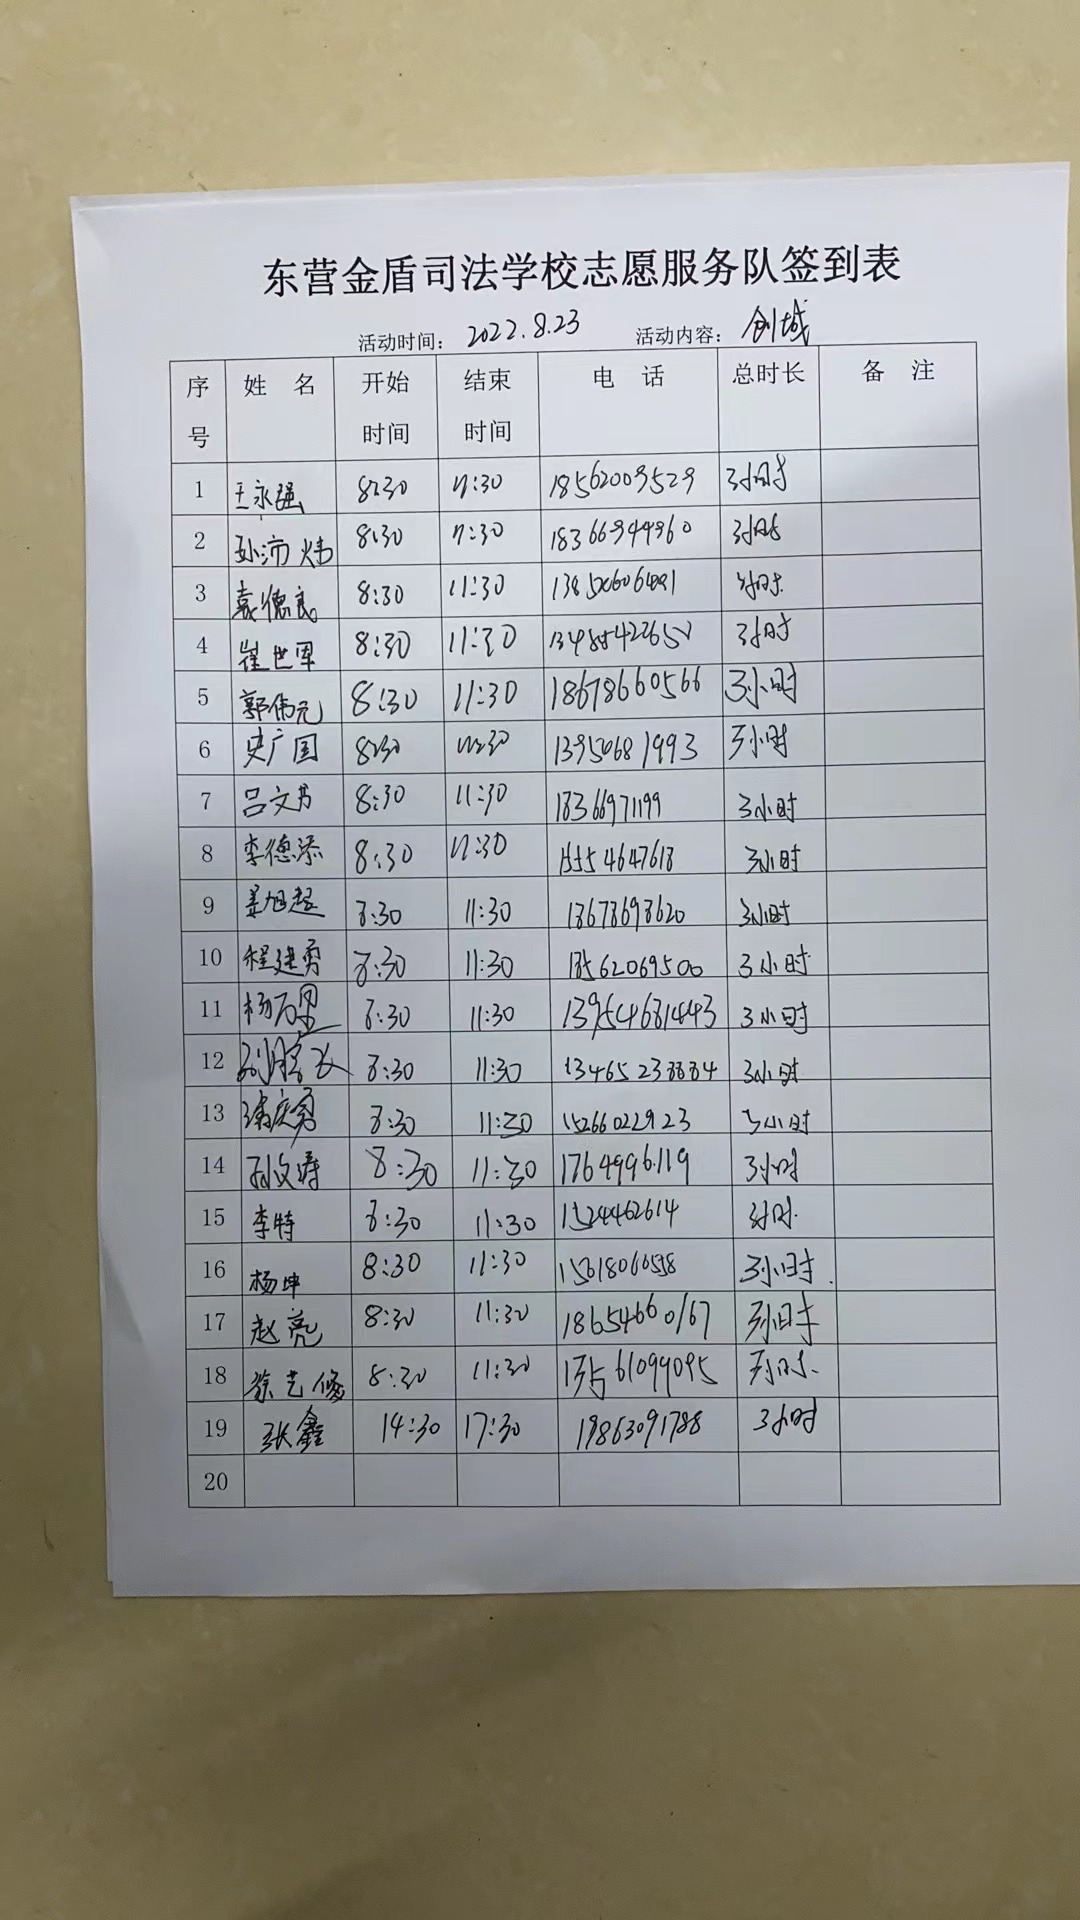 东营金盾司法学校志愿服务队签到表
活动时间: 2022.8.23 活动内容: 创城
序号 姓名 开始时间 结束时间 电话 总时长 备注
1 王永强 8:30 11:30 18562009529 3小时
2 孙沛炜 8:30 11:30 18366944960 3小时
3 袁德良 8:30 11:30 3小时
4 崔世军 8:30 11:30 3小时
5 郭伟元 8:30 11:30 18678660566 3小时
6 史广国 8:30 11:30 13954681993 3小时
7 吕文 8:30 11:30 18366971199 3小时
8 李德添 8:30 11:30 15554647618 3小时
9 姜旭超 8:30 11:30 18678698620 3小时
10 程建勇 8:30 11:30 18562069500 3小时
11 8:30 11:30 13954681443 3小时
12 8:30 11:30 13465238884 3小时
13 8:30 11:30 15266022923 3小时
14 孙文涛 8:30 11:30 1764996119 3小时
15 李特 8:30 11:30 1524462614 3小时
16 杨坤 8:30 11:30 3小时
17 赵亮 8:30 11:30 18654660167 3小时
18 徐艺修 8:30 11:30 3小时
19 张鑫 14:30 17:30 19863091788 3小时
20